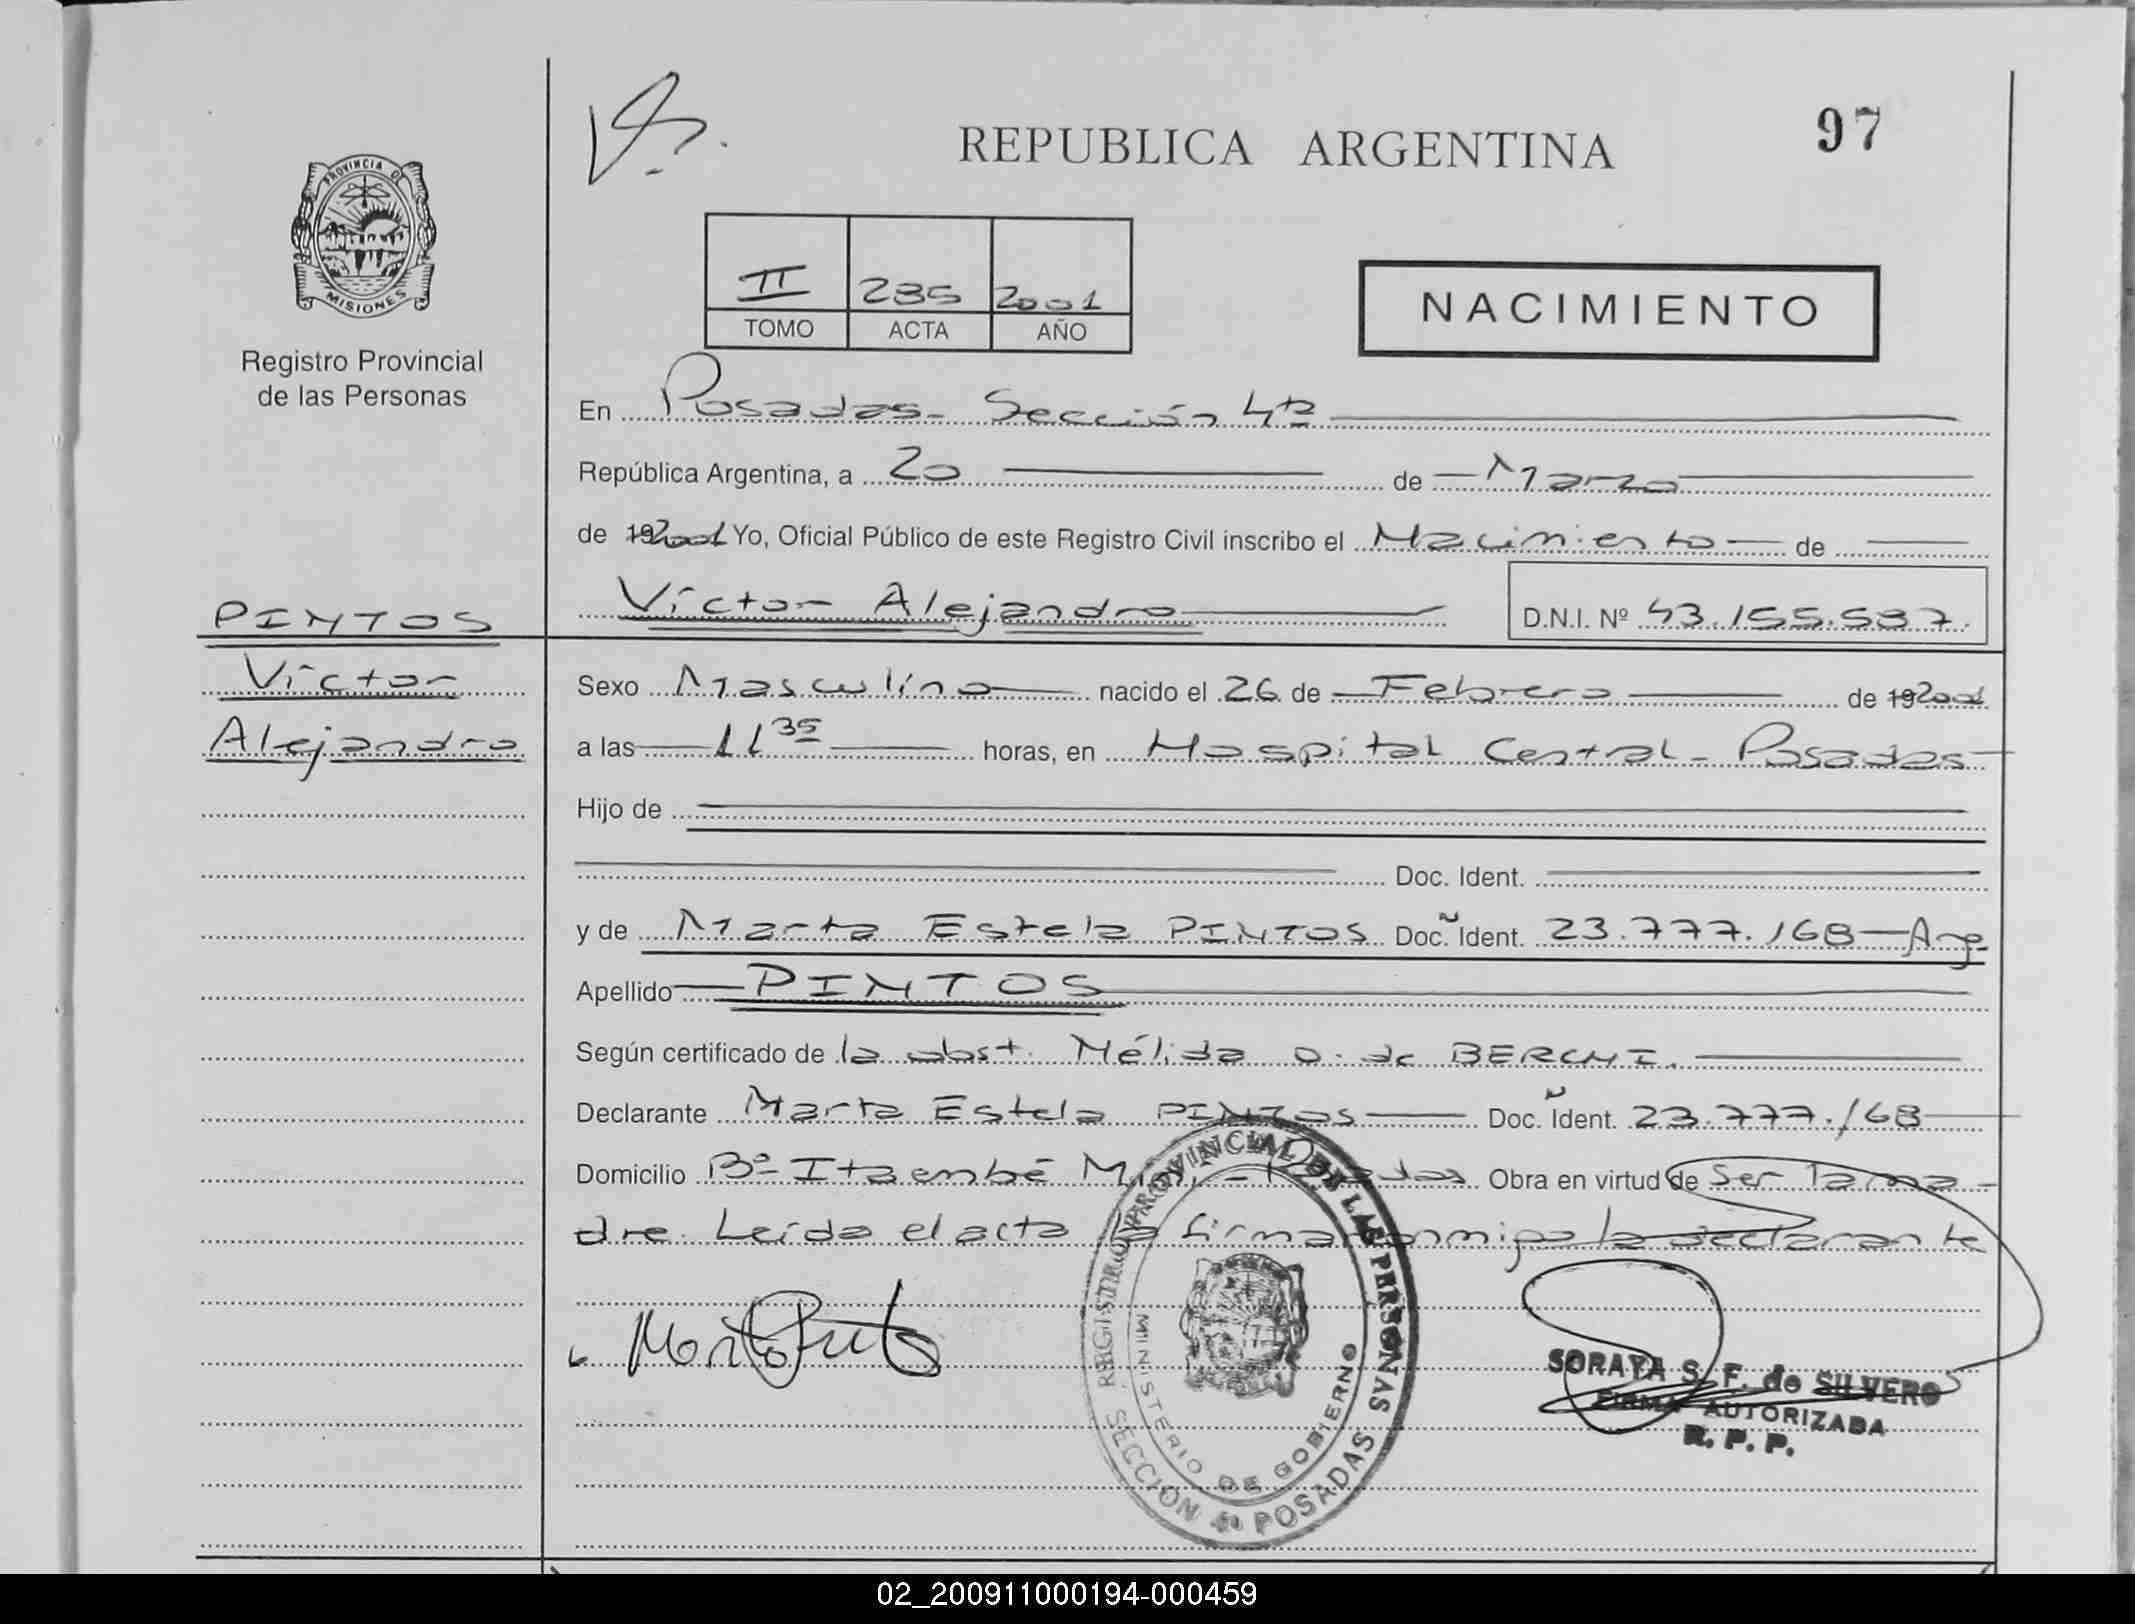 97
REPUBLICA ARGENTINA
PROVINCIA DE
MISIONES
Registro Provincial
de las Personas
II 285 2001
TOMO ACTA AÑO
NACIMIENTO
En Posadas - Sección 4ta
República Argentina, a 20 de Marzo
de 192001 Yo, Oficial Público de este Registro Civil inscribo el Nacimiento de
Víctor Alejandro D.N.I. Nº 43.155.587.
PINTOS
Víctor
Alejandro
Sexo Masculino nacido el 26 de Febrero de 192001
a las 11 35 horas, en Hospital Central - Posadas
Hijo de
Doc. Ident.
y de Marta Estela PINTOS Doc. Ident. 23.777.168 - Arg.
Apellido PINTOS
Según certificado de la obst. Nélida O. de BERCHI.
Declarante Marta Estela PINTOS Doc. Ident. 23.777.168
Domicilio Bº Itaembé Miní - Posadas Obra en virtud de Ser la ma-
dre. Leída el acta la firma conmigo la declarante
REGISTRO PROVINCIAL DE LAS PERSONAS
MINISTERIO DE GOBIERNO
SECCION 4ª POSADAS
SORAYA S. F. de SILVERO
FIRMA AUTORIZADA
R. P. P.
02_200911000194-000459